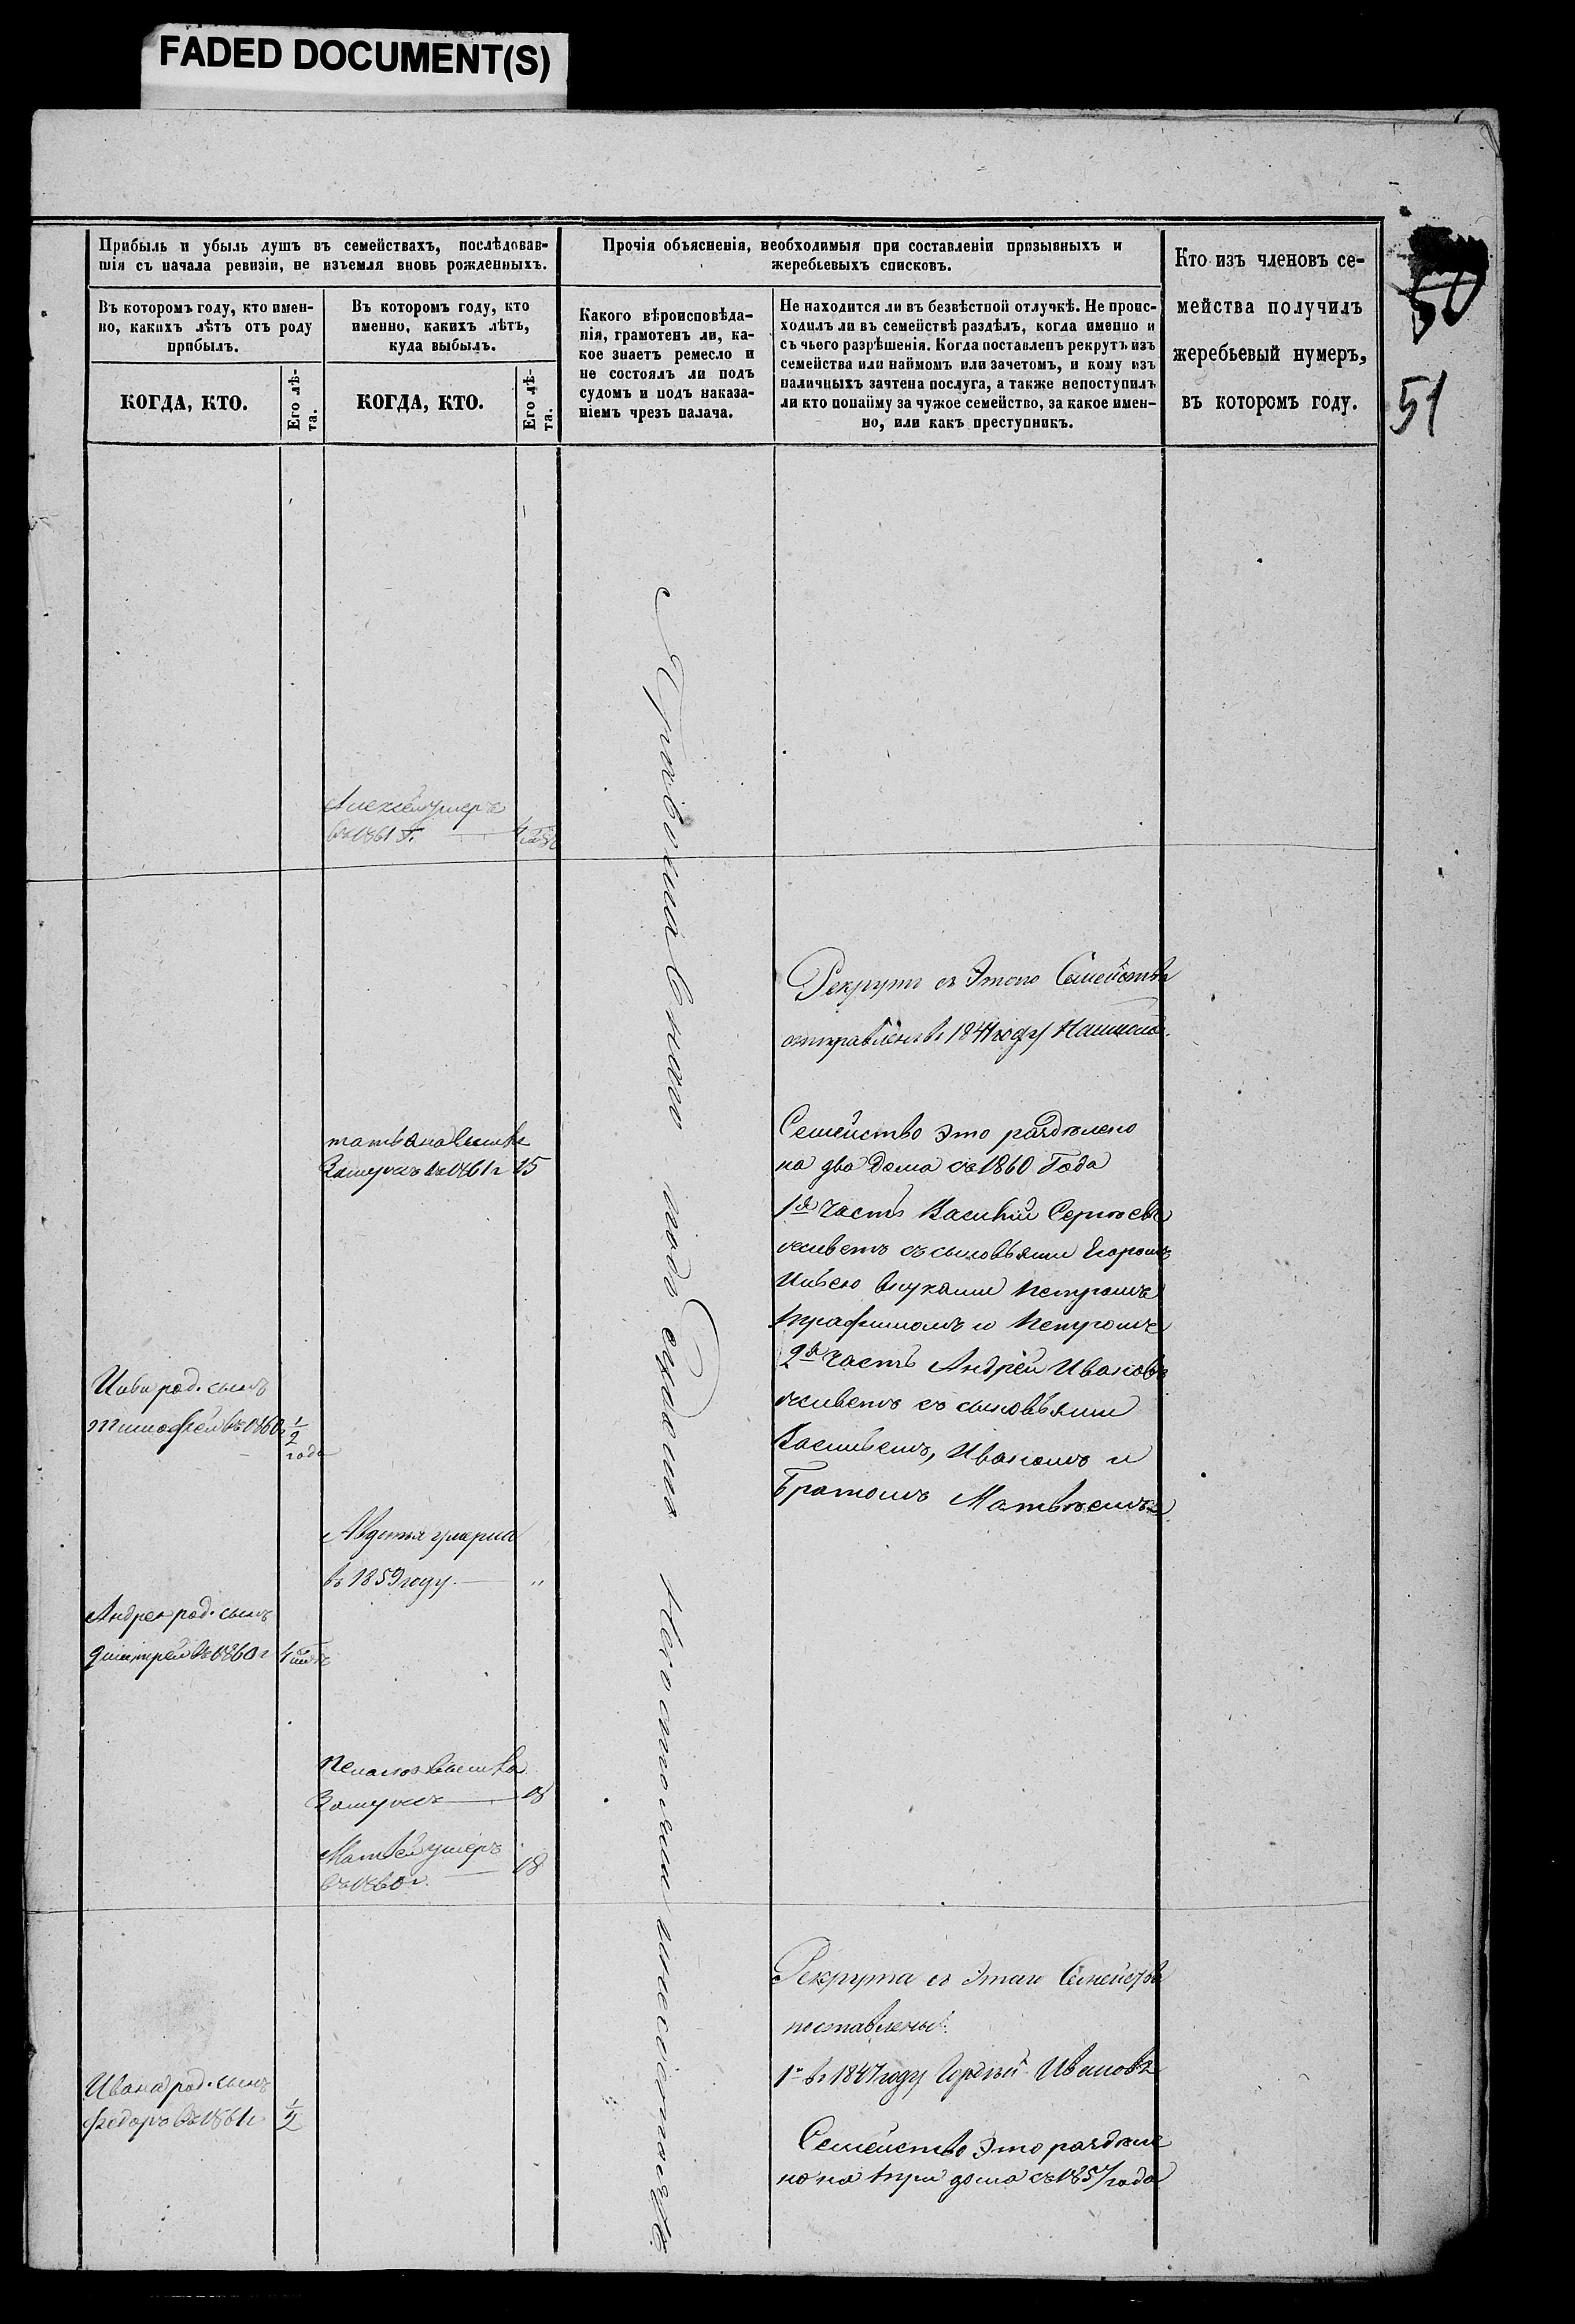 FADED DOCUMENT(S)
50
51
Прибыль и убыль душъ въ семействахъ, послѣдовав-
шія съ начала ревизіи, не изъемля вновь рожденныхъ.
Въ которомъ году, кто имен-
но, какихъ лѣтъ отъ роду
прибылъ.
Въ которомъ году, кто
именно, какихъ лѣтъ,
куда выбылъ.
КОГДА, КТО.
Его лѣ-
та.
КОГДА, КТО.
Его лѣ-
та.
Прочія объясненія, необходимыя при составленіи призывныхъ и
жеребьевыхъ списковъ.
Какого вѣроисповѣда-
нія, грамотенъ ли, ка-
кое знаетъ ремесло и
не состоялъ ли подъ
судомъ и подъ наказа-
ніемъ чрезъ палача.
Не находится ли въ безвѣстной отлучкѣ. Не проис-
ходилъ ли въ семействѣ раздѣлъ, когда именно и
съ чьего разрѣшенія. Когда поставленъ рекрутъ изъ
семейства или наймомъ или зачетомъ, и кому изъ
наличныхъ зачтена послуга, а также непоступилъ
ли кто понайму за чужое семейство, за какое имен-
но, или какъ преступникъ.
Кто изъ членовъ се-
мейства получилъ
жеребьевый нумеръ,
въ которомъ году.
Алексей умеръ
въ 1861 г.
татьяна
Замужъ въ 1861 г 15
род. сынъ
тимофей въ 1860 г 1/2
года
Авдотья умерла
въ 1859 году. "
Андрея род. сынъ
дмитрей въ 1860 г
Замужъ 18
Матвей умеръ
въ 1860 г. 18
Ивана род. сынъ
федоръ въ 1861 г 1/2
подъ судомъ Несостояли и несостоятъ
Рекрутъ съ Этого Семейства
отправленъ въ 1841 году
Семейство Это раздѣлено
на два Дома съ 1860 Года
1я часть Василий Сергѣевъ
живетъ съ сыновьями Егоромъ
внуками Петромъ
трафимомъ и Петромъ
2я часть Андрей Ивановъ
живетъ съ сыновьями
Васильемъ, Иваномъ и
Братомъ Матвѣемъ
Рекрута съ Этаго Семейства
поставлены:
1й въ 1847 году Ивановъ
Семейство Это раздѣле
но на три дома съ 1857 года